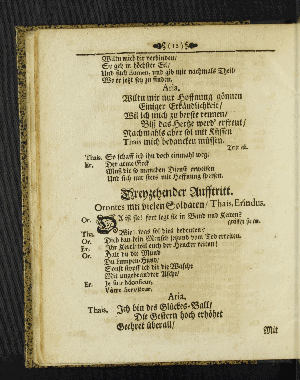 (12)
Wiltu mich dir verbinden/
So geh in höchster Eil/
Und such Lumen, und gib mir nachmals Theil/
Wo er jetzt sey zu finden.
Aria.
Wiltu mir nur Hoffnung gönnen
Einiger Erkändlichkeit/
Wil ich mich zu Dienste rennen/
Biß das Hertze werd' erfreut/
Nachmahls aber sol mit Küssen
Thais mich bedancken müssen.
Thais. So schaff ich ihn doch einmahl weg.
Er. Der arme Geck
Muß mir so manchen Dienst erweisen
Und sich nur stets mit Hoffnung speisen.
Dreyzehender Aufftritt.
Orontes mit vielen Soldaten/ Thais, Erindus.
Or. DA ist sie! fort legt sie in Band und Ketten?
Tha. Wie? was sol dieß bedeuten?
Or.
Er. Ihr Kerls/ soll euch der Hencker reiten!
Or. Halt du die Mund
Du Lumpen-Hund/
Sonst
Mit ungebrandter Asche/
Er. Je suis
Vôtre serviteur.
Aria.
Thais. Ich bin des Glückes-Ball/
Die Gestern hoch erhöhet
Geehret überall/
Mit